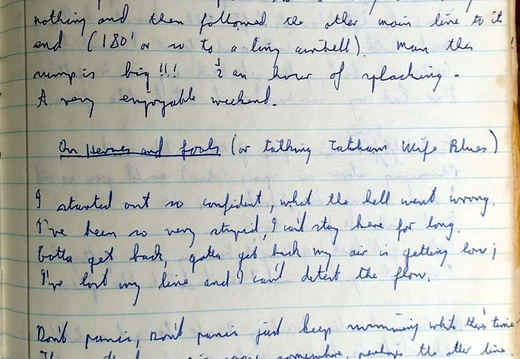 nothing and then followed the other main line to its
end (180' or so to a tiny airbell). Man this
sump is big!!! ½ an hour of splashing.
A very enjoyable weekend.
On Heroes and fools (or talking Tatham Wife Blues)
I started out so confident, what the hell went wrong.
I've been so very stupid, I can't stay here for long.
Gotta get back, gotta get back my air is getting low;
I've lost my line and I can't detect the flow.
Don't panic, Don't panic just keep swimming while there's time
somewhere, perhaps the other line